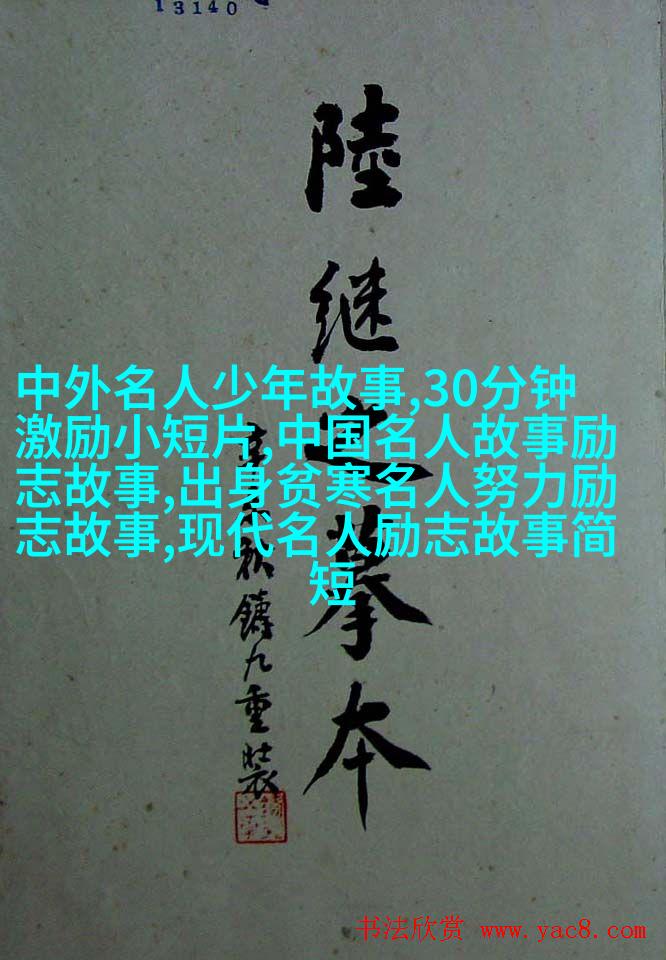 13140
陸继之摹本
鑄九重裝
中外名人少年故事,30分钟
激励小短片,中国名人故事励
志故事,出身贫寒名人努力励
志故事,现代名人励志故事简
短
书法欣赏 www.yac8.com